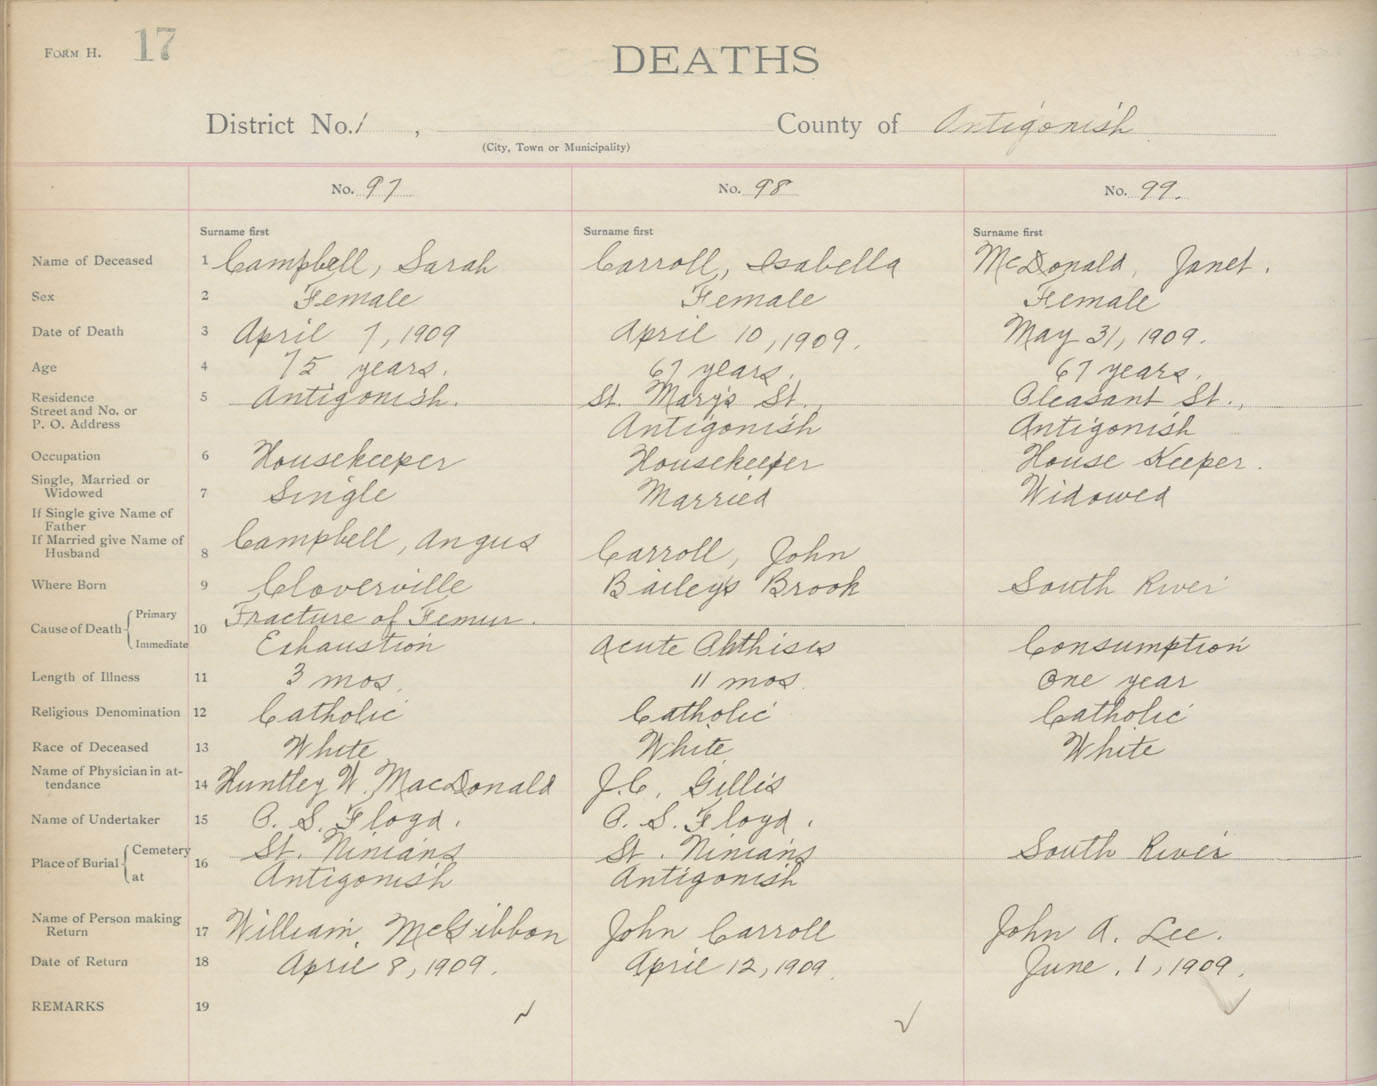 FORM H. 17
DEATHS
District No. 1 , County of Antigonish
(City, Town or Municipality)
No. 97 No. 98 No. 99.
Surname first Surname first Surname first
Name of Deceased 1 Campbell, Sarah Carroll, Isabella McDonald, Janet.
Sex 2 Female Female Female
Date of Death 3 April 7, 1909 April 10, 1909. May 31, 1909.
Age 4 75 years. 67 years. 67 years.
Residence 5 Antigonish. St. Mary's St., Pleasant St.,
Street and No. or
P. O. Address Antigonish Antigonish
Occupation 6 Housekeeper Housekeeper House Keeper.
Single, Married or
Widowed 7 Single Married Widowed
If Single give Name of
Father
If Married give Name of
Husband 8 Campbell, Angus Carroll, John
Where Born 9 Cloverville Bailey's Brook South River
Cause of Death Primary 10 Fracture of Femur.
Immediate Exhaustion Acute Phthisis Consumption
Length of Illness 11 3 mos. 11 mos. One year
Religious Denomination 12 Catholic Catholic Catholic
Race of Deceased 13 White White White
Name of Physician in at-
tendance 14 Huntley W. MacDonald J.C. Gillis
Name of Undertaker 15 C. S. Floyd. C. S. Floyd.
Place of Burial Cemetery 16 St. Ninians St. Ninians South River
at Antigonish Antigonish
Name of Person making
Return 17 William McGibbon John Carroll John A. Lee.
Date of Return 18 April 8, 1909. April 12, 1909. June 1, 1909.
REMARKS 19